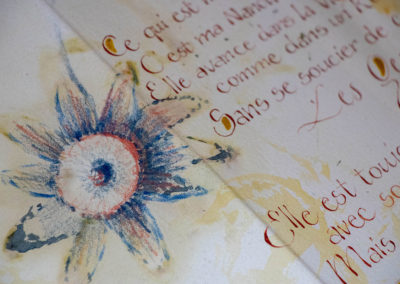 Ce qui est m
C'est ma Nanou
Elle avance dans la v
comme dans un R
Sans se soucier de
Les
Elle est touj
avec so
Mais